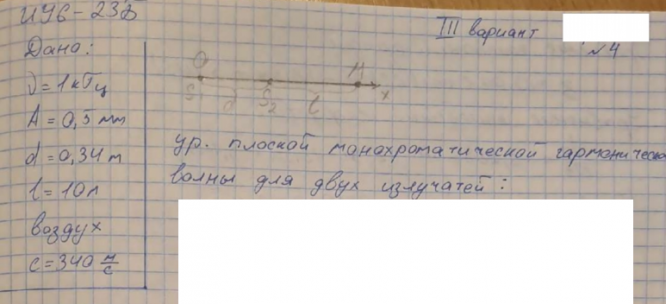 ИУ6-23Б
III вариант
№4
Дано:
ν=1кГц
A=0,5мм
d=0,34м
l=10м
воздух
c=340 м/с
O M
S₁ d S₂ l x
ур. плоской монохроматической гармонической
волны для двух излучателей: